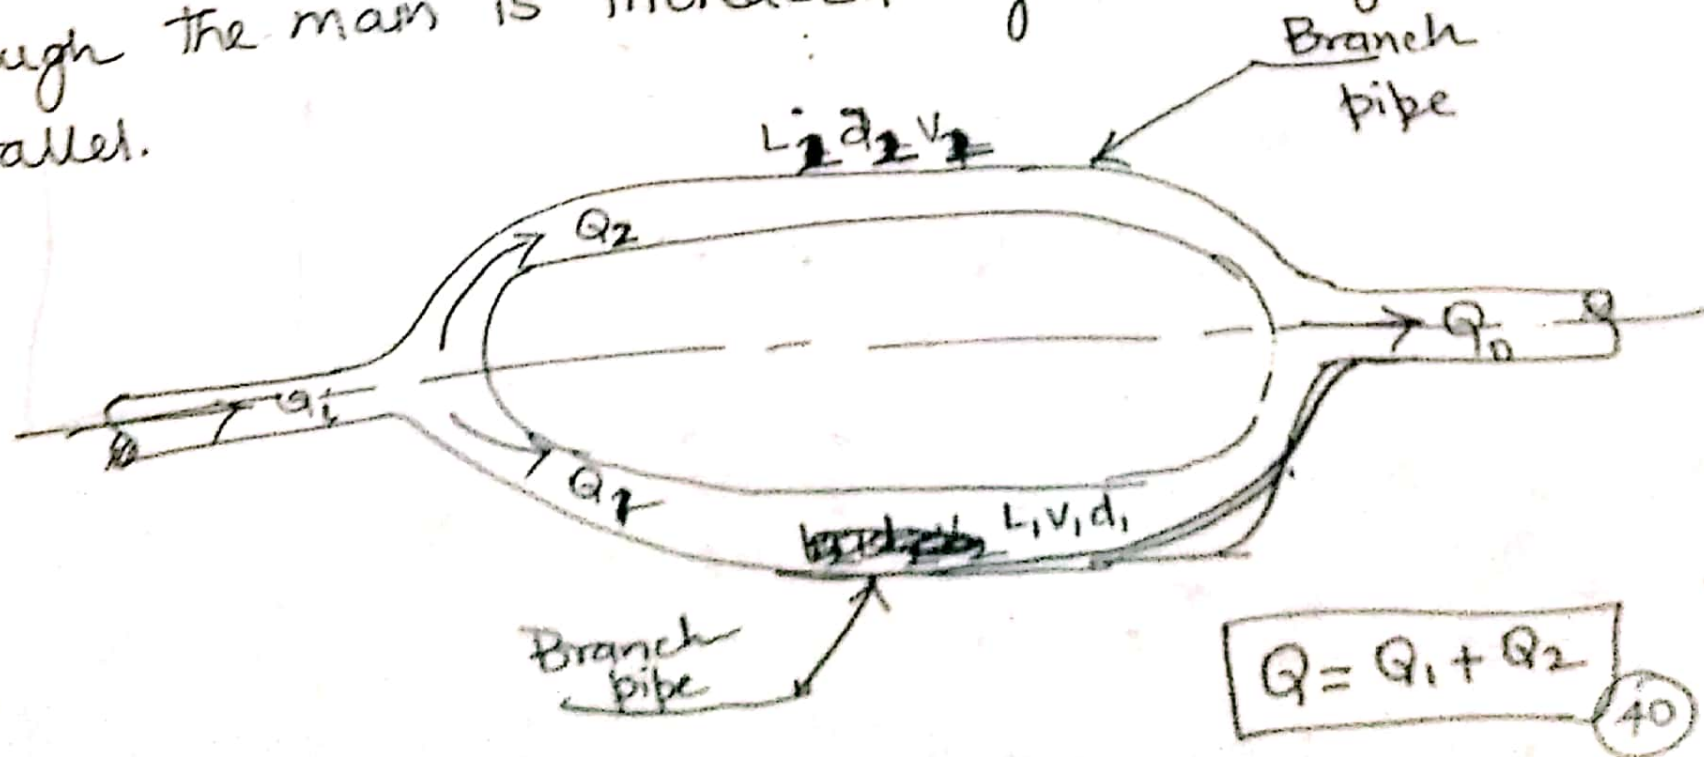 ugh the main is
allel.
Branch
pipe
L2 d2 V2
Q2
Qi
Qo
Q1
L1 V1 d1
Branch
pipe
Q = Q1 + Q2
40